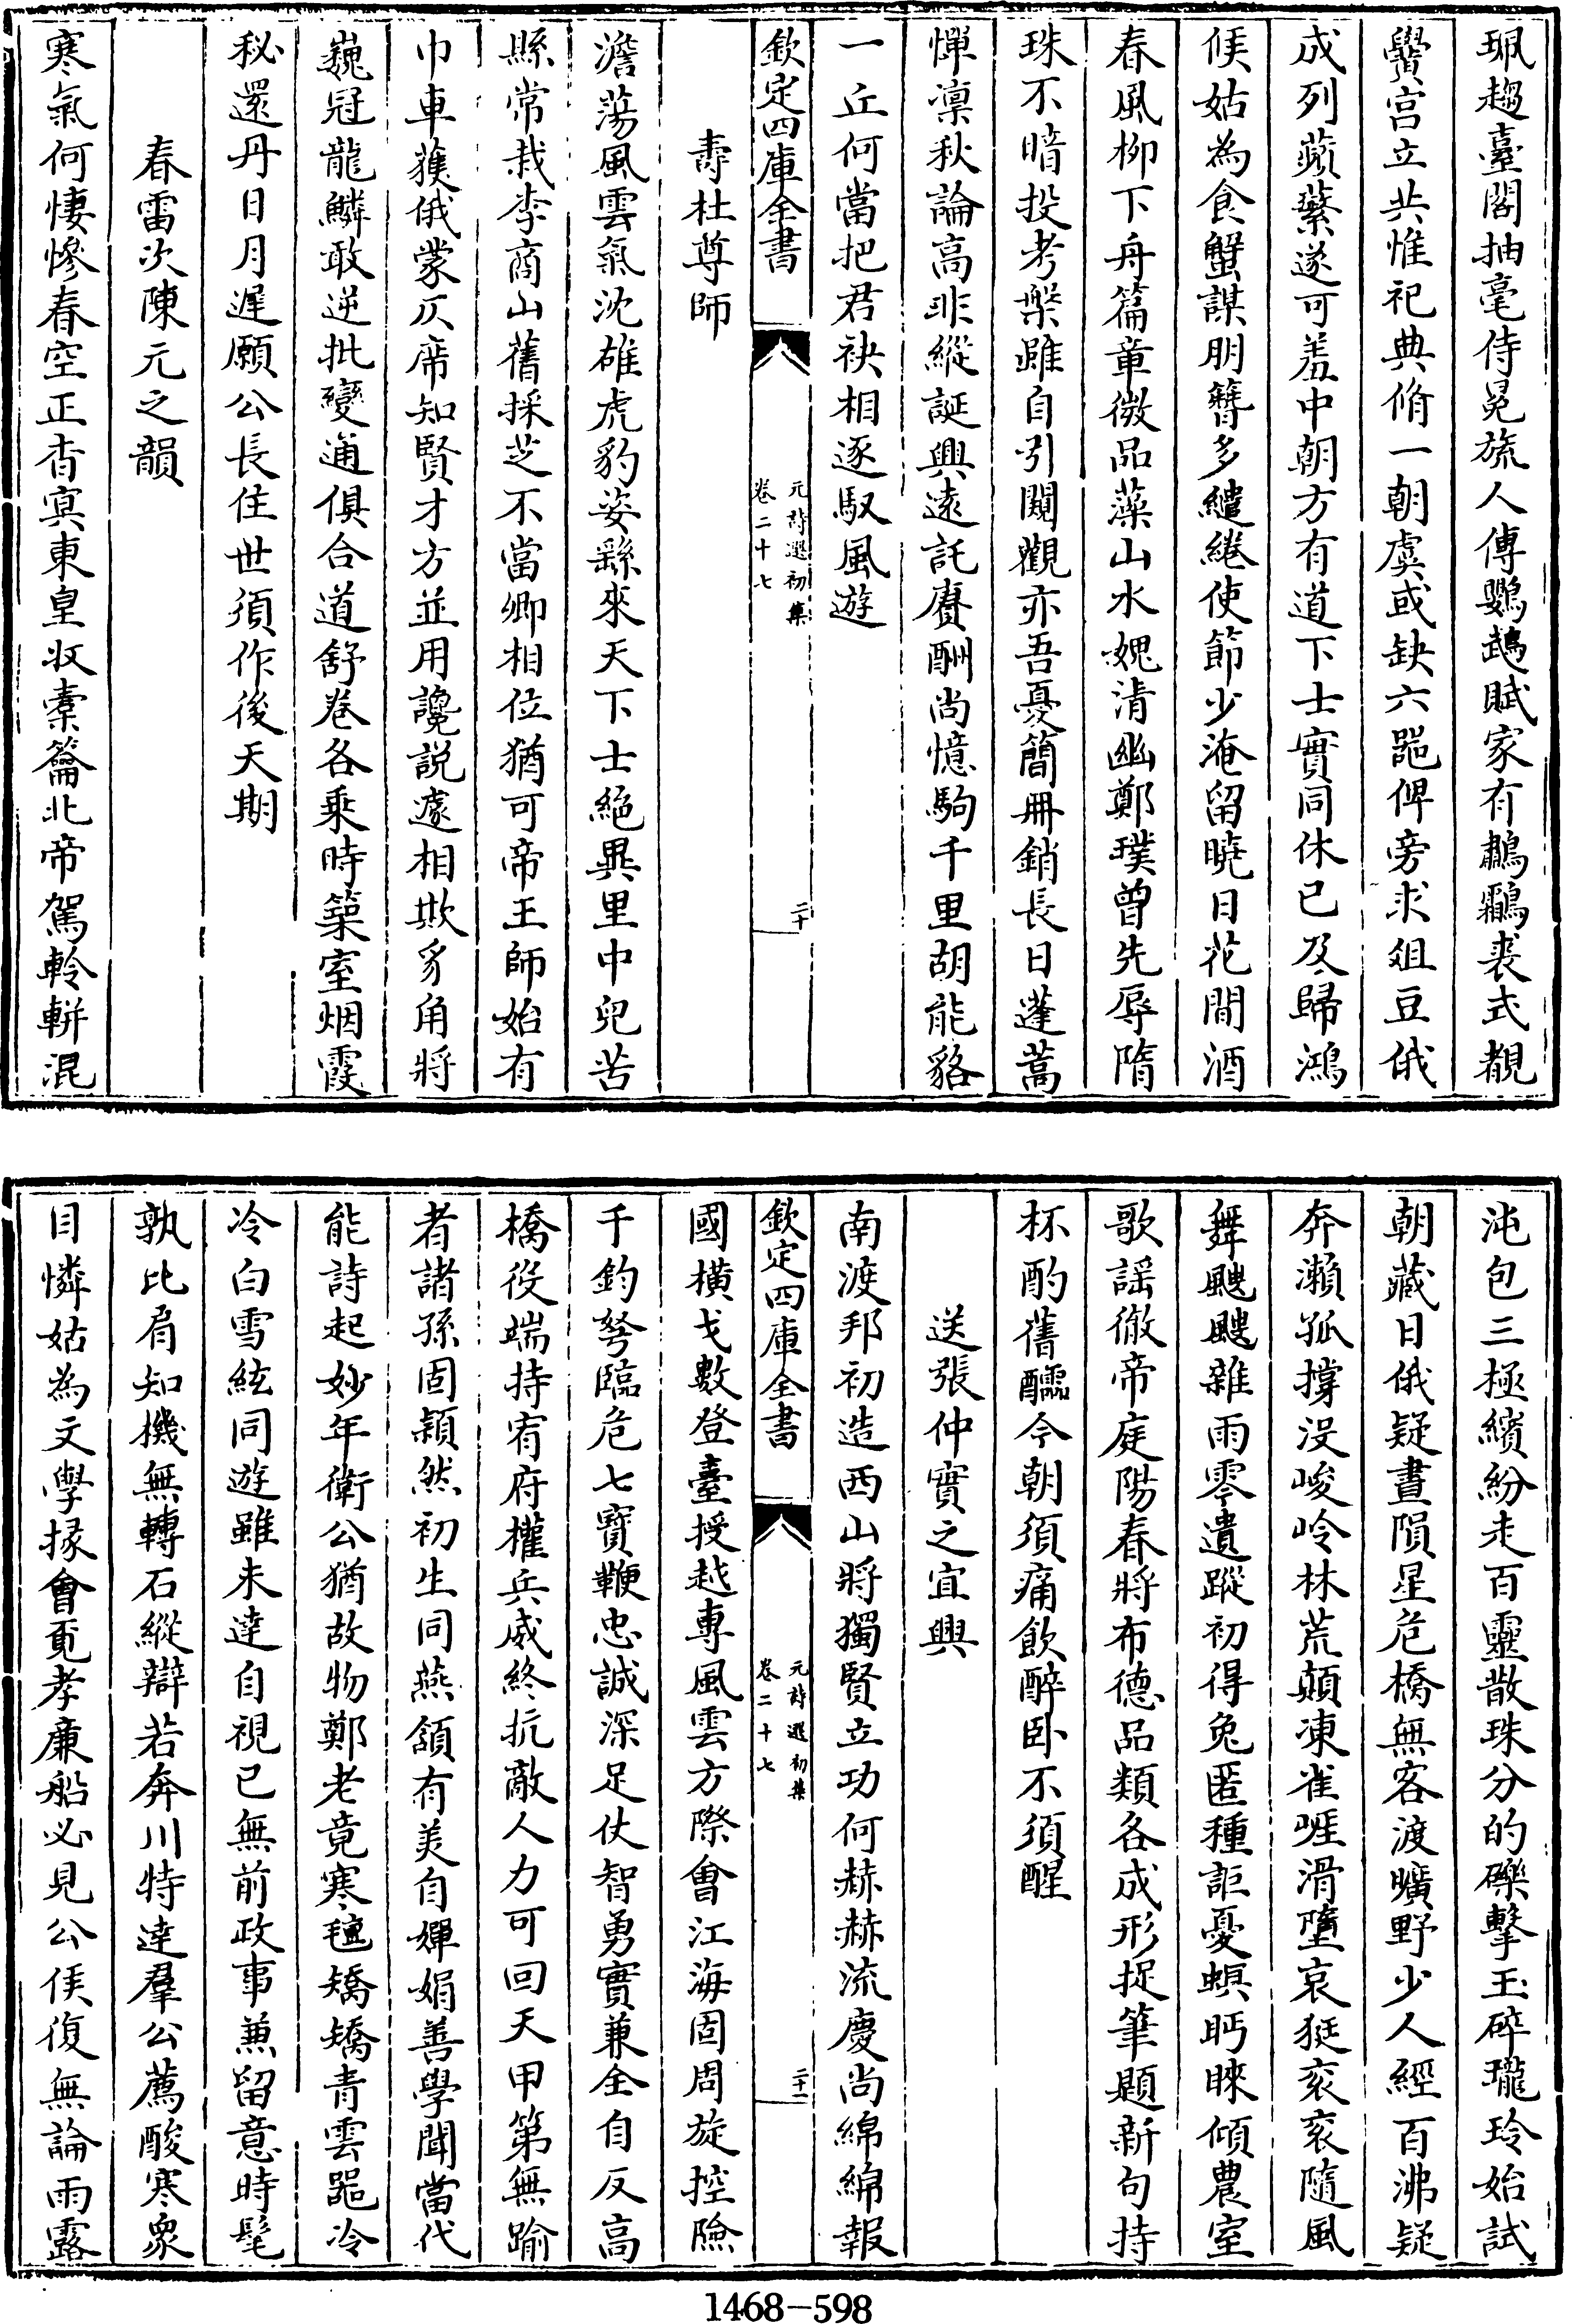 珮趨臺閣抽毫侍冕旒人傳鸚鵡賦家有鷫鸘裘式覩
黌宫立共惟祀典脩一朝虞或缺六器俾旁求俎豆俄
成列蘋蘩遂可羞中朝方有道下士實同休已及歸鴻
候姑為食蟹謀朋簪多繾綣使節少淹留曉日花間酒
春風柳下舟篇章微品藻山水媿清幽鄭璞曾先辱隋
珠不暗投考槃雖自引閱觀亦吾憂簡冊銷長日蓬蒿
憚凜秋論高非縱誕興遠託賡酬尚憶駒千里胡能貉
一丘何當把君袂相逐馭風遊
欽定四庫全書
元詩選初集
卷二十七
二十
壽杜尊師
澹蕩風雲氣沈雄虎豹姿繇來天下士絕異里中兒苦
縣常栽李商山舊採芝不當卿相位猶可帝王師始有
巾車獲俄蒙仄席知賢才方並用讒説遽相欺豸角將
巍冠龍鱗敢逆批變通俱合道舒卷各乘時築室烟霞
秘還丹日月遲願公長住世須作後天期
春雷次陳元之韻
寒氣何悽慘春空正杳冥東皇收橐籥北帝駕軨軿混
沌包三極繽紛走百靈散珠分的礫擊玉碎瓏玲始試
朝藏日俄疑晝隕星危橋無客渡曠野少人經百沸疑
奔瀨孤撐没峻岭林荒顛凍雀崕滑墮哀狿衮衮隨風
舞颼颼雜雨零遺蹤初得兔匿種詎憂螟眄睞傾農室
歌謡徹帝庭陽春將布德品類各成形捉筆題新句持
杯酌舊醽今朝須痛飲醉卧不須醒
送張仲實之宜興
南渡邦初造西山將獨賢立功何赫赫流慶尚綿綿報
欽定四庫全書
元詩選初集
卷二十七
二十一
國橫戈數登臺授越專風雲方際會江海固周旋控險
千鈞弩臨危七寶鞭忠誠深足仗智勇實兼全自反高
橋役端持宥府權兵威終抗敵人力可回天甲第無踰
者諸孫固頴然初生同燕頷有美自嬋娟善學聞當代
能詩起妙年衛公猶故物鄭老竟寒氊矯矯青雲器冷
冷白雪絃同遊雖未達自視已無前政事兼留意時髦
孰比肩知機無轉石縱辯若奔川特達羣公薦酸寒衆
目憐姑為文學掾會覓孝廉船必見公侯復無論雨露
1468-598